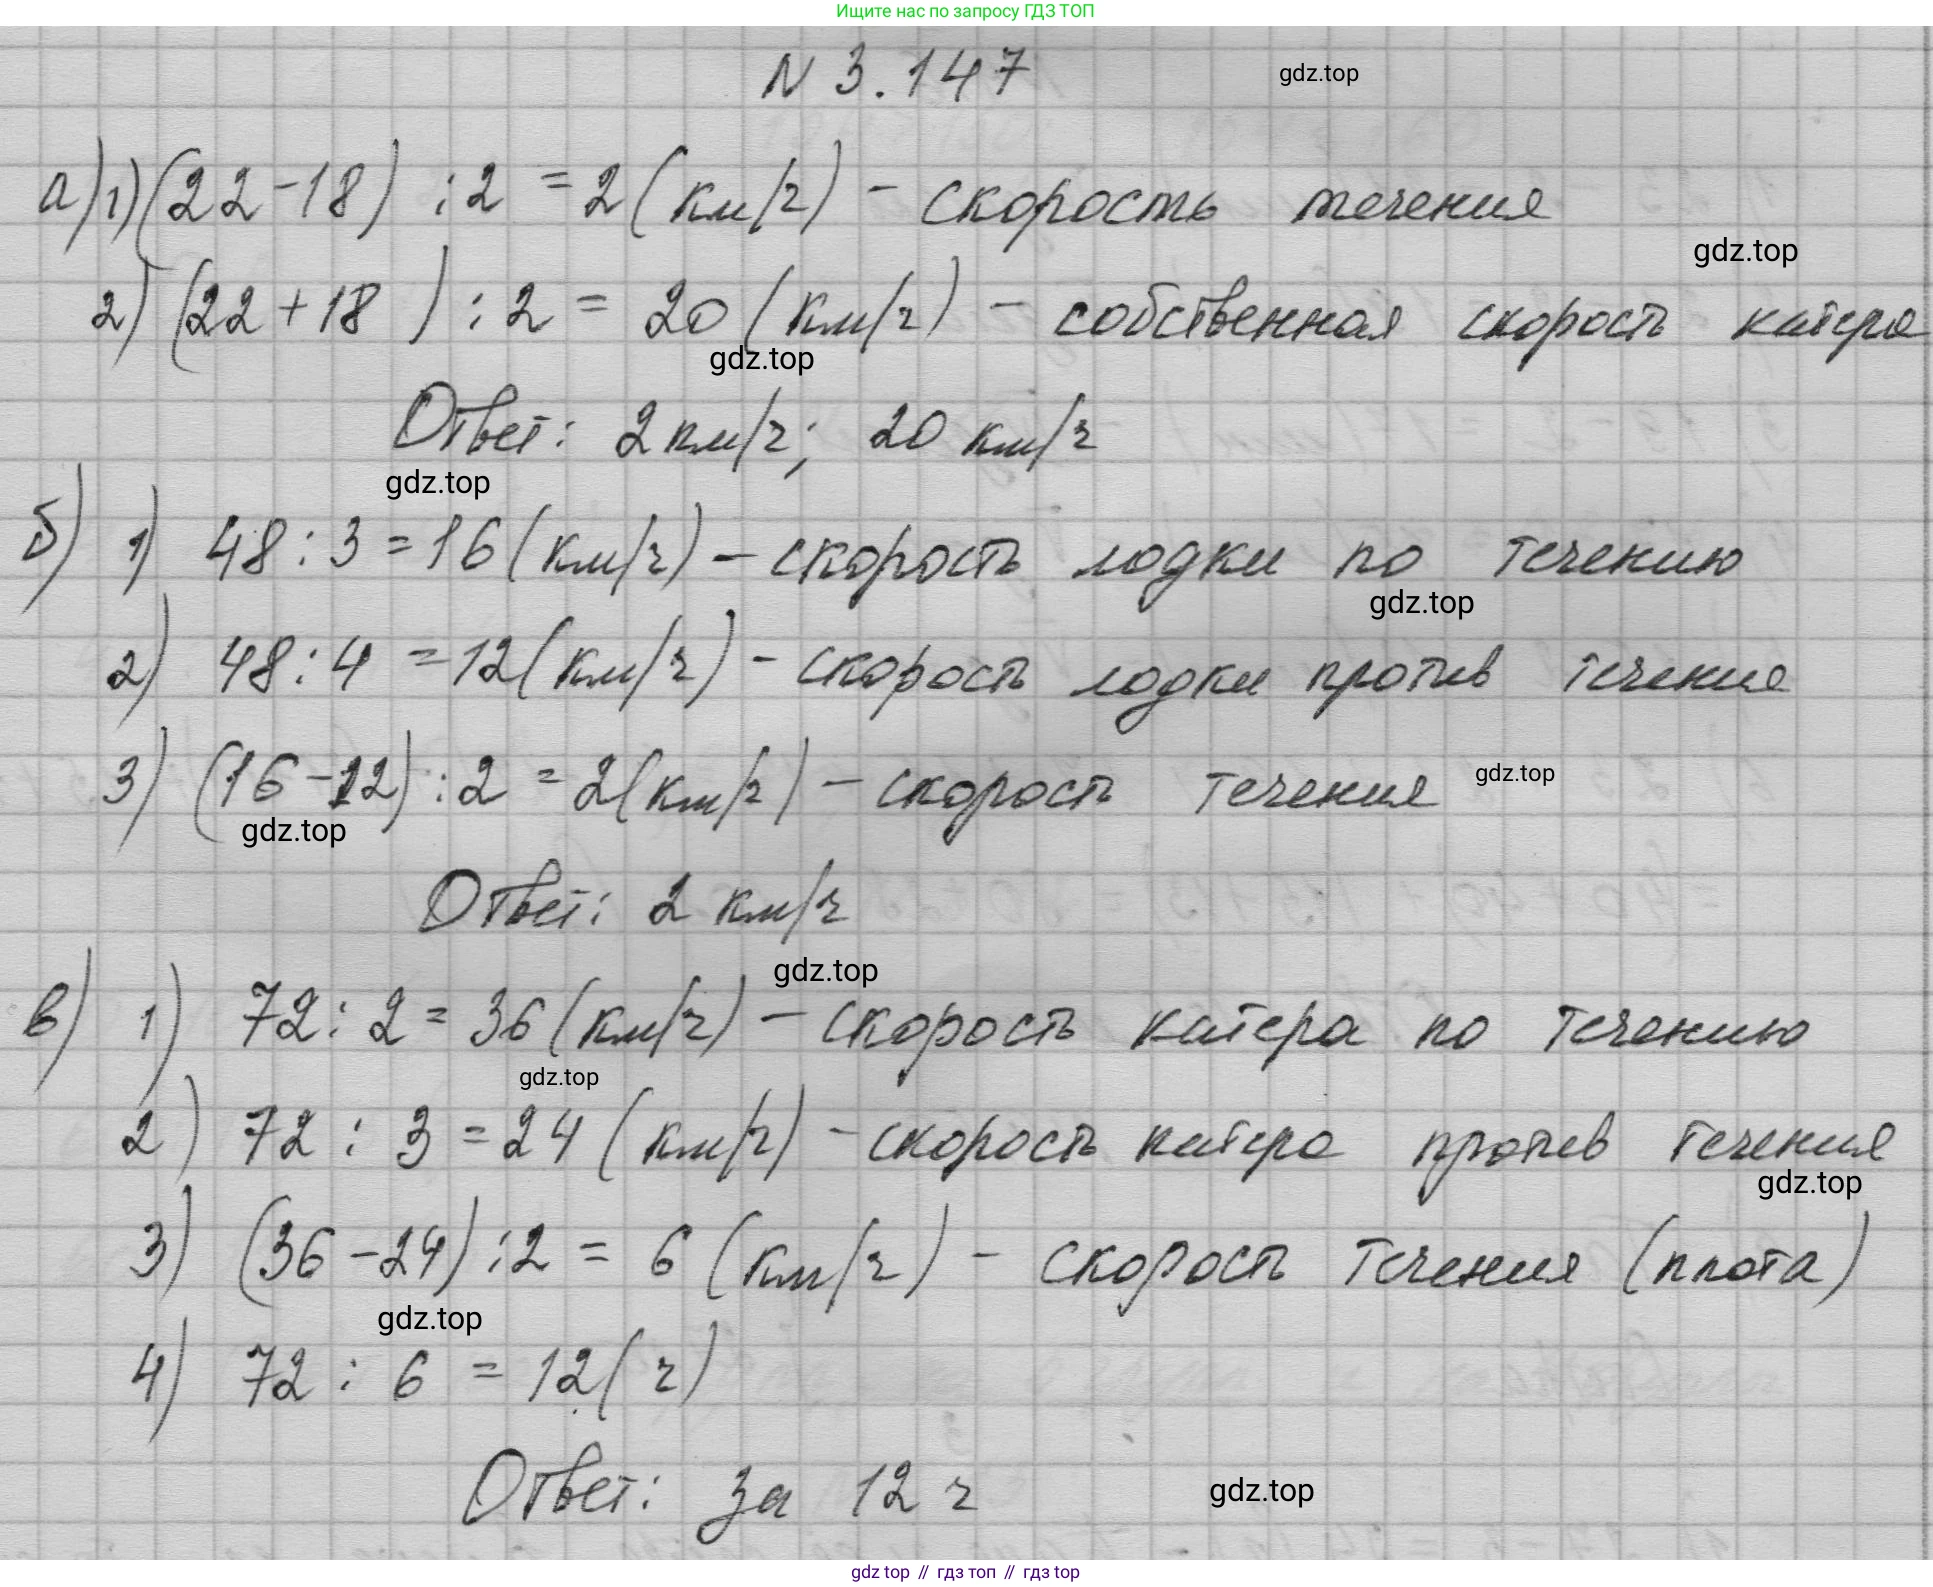 Ищите нас по запросу ГДЗ ТОП
N 3.147
gdz.top
а) 1) (22-18) :2 = 2 (км/ч) - скорость течения
gdz.top
2) (22+18) :2 = 20 (км/ч) - собственная скорость катера
gdz.top
Ответ: 2 км/ч; 20 км/ч
gdz.top
б) 1) 48:3=16 (км/ч) - скорость лодки по течению
gdz.top
2) 48:4=12 (км/ч) - скорость лодки против течения
3) (16-12):2=2 (км/ч) - скорость течения
gdz.top
gdz.top
Ответ: 2 км/ч
gdz.top
в) 1) 72:2=36 (км/ч) - скорость катера по течению
gdz.top
2) 72:3=24 (км/ч) - скорость катера против течения
gdz.top
3) (36-24):2=6 (км/ч) - скорость течения (плота)
gdz.top
4) 72:6=12 (ч)
Ответ: за 12 ч
gdz.top
gdz top // гдз топ // гдз top